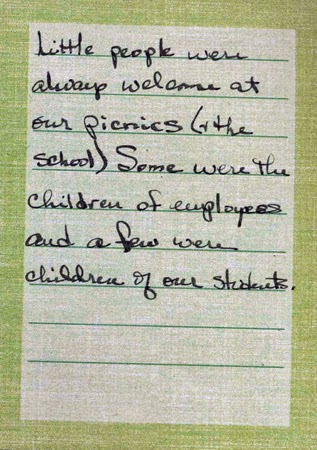 Little people were
always welcome at
our picnics (& the
school) Some were the
children of employees
and a few were
children of our students.